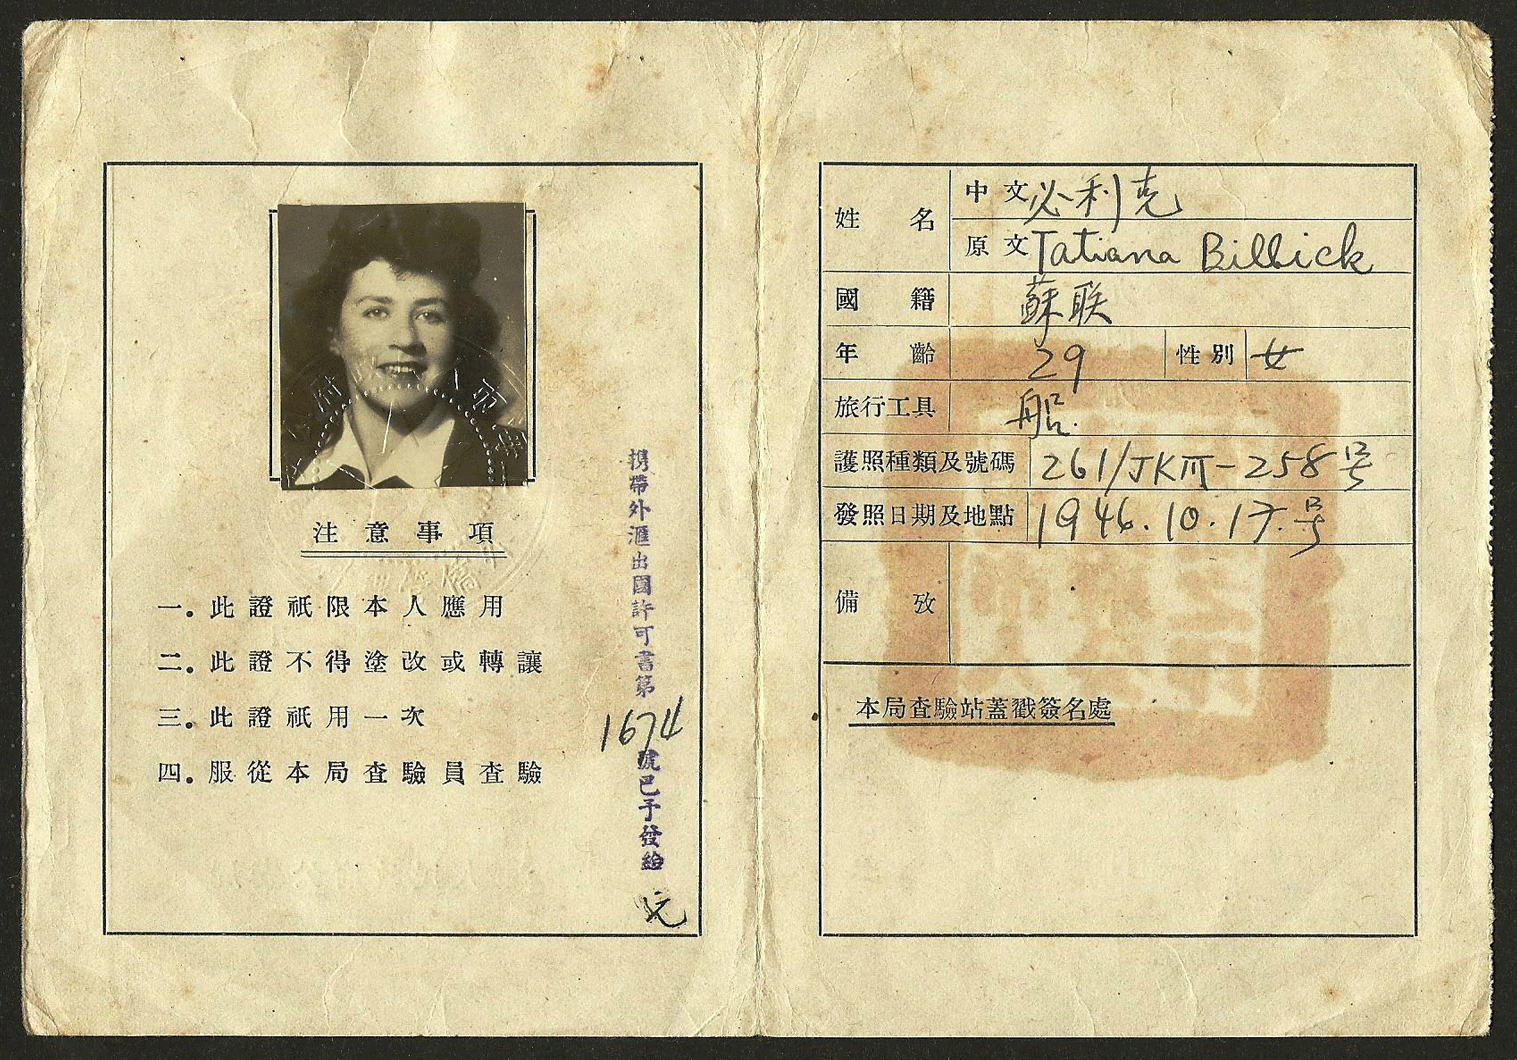 注意事項
一。此證祇限本人應用
二。此證不得塗改或轉讓
三。此證祇用一次
四。服從本局查驗員查驗
携帶外滙出國許可書第
1674
號已予發給
姓名
中文 必利克
原文 Tatiana Billick
國籍 蘇联
年齡 29 性別 女
旅行工具 船
護照種類及號碼 261/JKIII-258号
發照日期及地點 1946.10.17.号
備攷
本局查驗站蓋戳簽名處